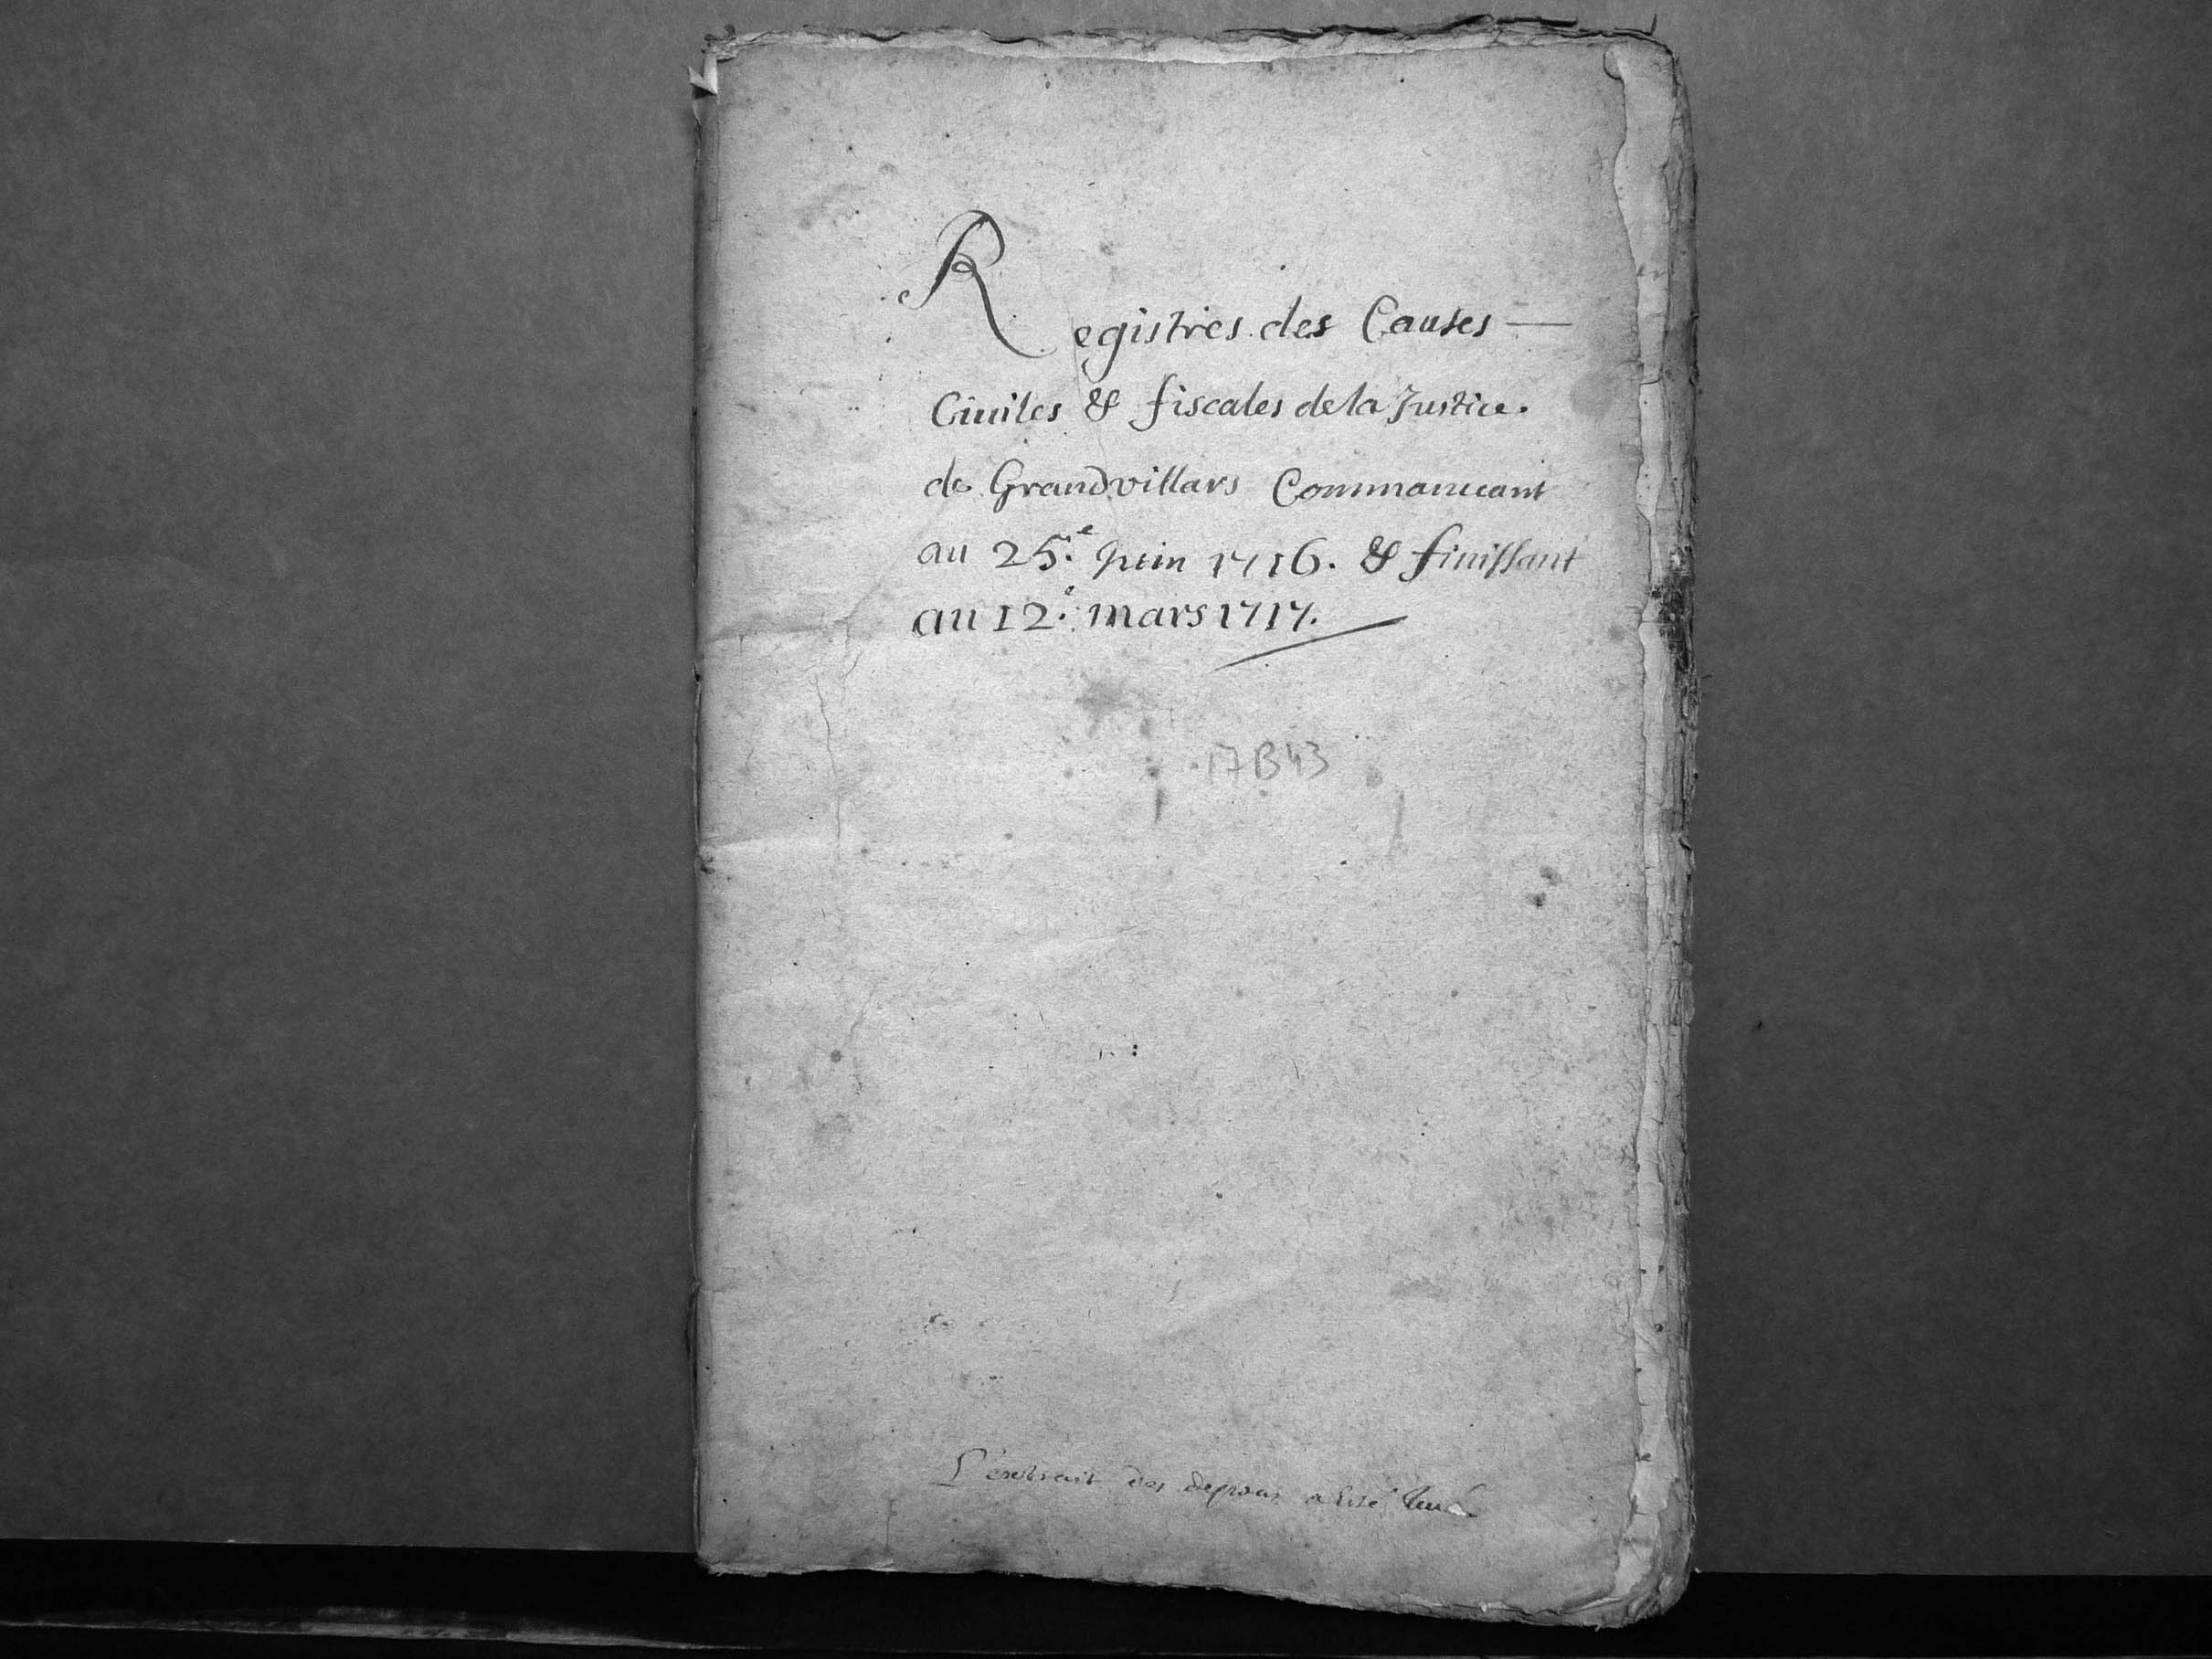 Registres des Causes —
Ciuiles & fiscales de la Justice.
de Grandvillars Commancant
au 25.e Juin 1716. & finissant
au 12.e mars 1717.
17B43
L'extrait des depens a esté